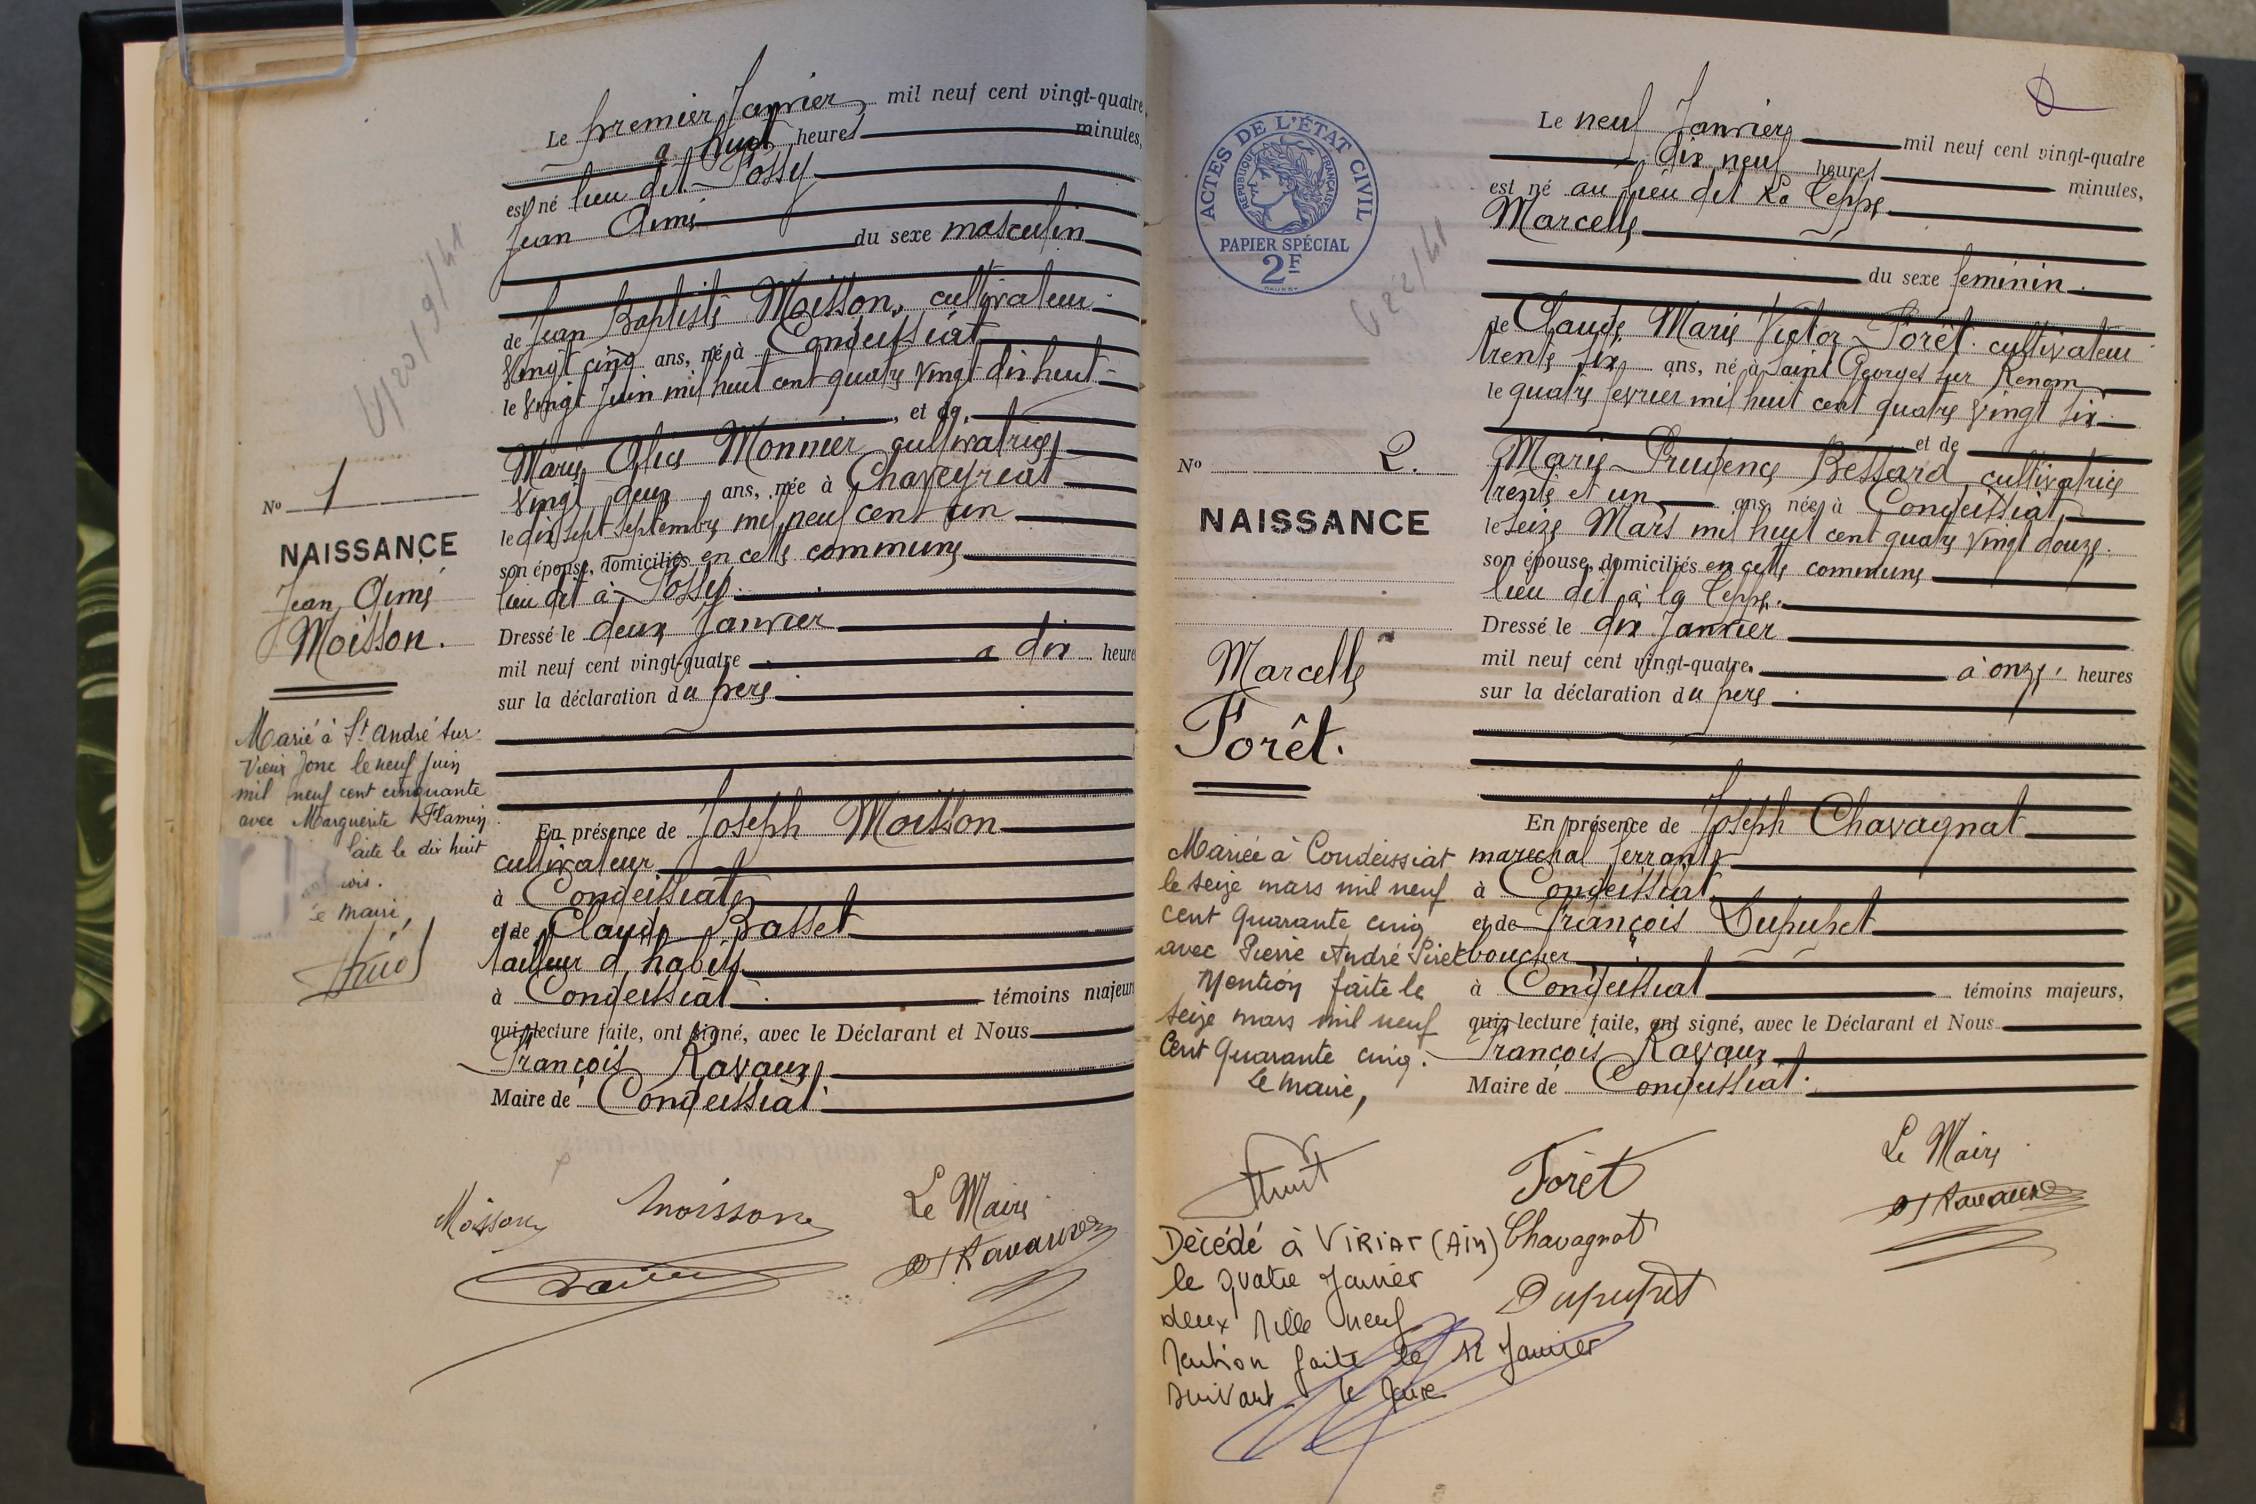 Le premier Janvier mil neuf cent vingt-quatre
a huit heures minutes,
est né lieu dit Fossy
Jean Aimé
du sexe masculin
de Jean Baptiste Moisson, cultivateur
vingt cinq ans, né à Condeissiat
le vingt Juin mil huit cent quatre vingt dix huit
, et de
Marie Alice Monnier cultivatrice
vingt deux ans, née à Chaveyriat
le dix sept septembre mil neuf cent un
son épouse, domiciliés en cette commune
lieu dit à Fossy.
Dressé le deux Janvier
mil neuf cent vingt-quatre a dix heures
sur la déclaration du père
En présence de Joseph Moisson
cultivateur
à Condeissiat
et de Claude Basset
tailleur d'habits
à Condeissiat témoins majeurs
qui, lecture faite, ont signé, avec le Déclarant et Nous
François Ravaux
Maire de Condeissiat
Moisson Moisson Le Maire
Ravaux
No 1
NAISSANCE
Jean Aimé
Moisson.
Marié à St André sur
Vieux Jonc le neuf Juin
mil neuf cent cinquante
avec Marguerite Flamin
faite le dix huit
Le Maire,
ACTES DE L'ÉTAT CIVIL
RÉPUBLIQUE FRANÇAISE
PAPIER SPÉCIAL
2F
Le neuf Janvier mil neuf cent vingt-quatre
dix neuf heures minutes,
est né au lieu dit La Teppe
Marcelle
du sexe feminin.
de Claude Marie Victor Forêt cultivateur
trente six ans, né à Saint Georges sur Renom
le quatre fevrier mil huit cent quatre vingt six
et de
Marie Prudence Bessard cultivatrice
trente et un ans, née à Condeissiat
le seize Mars mil huit cent quatre vingt douze.
son épouse, domiciliés en cette commune
lieu dit à la Teppe.
Dressé le dix Janvier
mil neuf cent vingt-quatre à onze heures
sur la déclaration du père
En présence de Joseph Chavagnat
marechal ferrant
à Condeissiat
et de François Dupupet
boucher
à Condeissiat témoins majeurs,
qui, lecture faite, ont signé, avec le Déclarant et Nous
François Ravaux
Maire de Condeissiat.
Forêt Le Maire
Ravaux
Chavagnat
Dupupet
No 2.
NAISSANCE
Marcelle
Forêt.
Mariée à Condeissiat
le seize mars mil neuf
cent quarante cinq
avec Pierre André Piret
Mention faite le
seize mars mil neuf
cent quarante cinq.
Le Maire,
Décédé à VIRIAT (Ain)
le quatre Janvier
deux mille neuf
Mention faite le 12 Janvier
suivant. le Maire